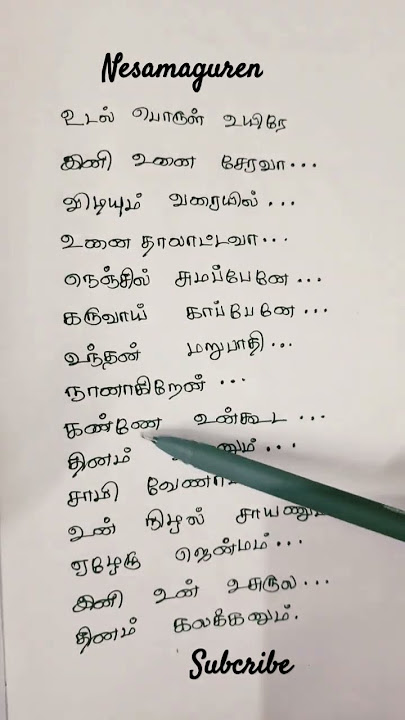 Nesamaguren
உடல் பொருள் உயிரே
இனி உனை சேரவா...
விடியும் வரையில்...
உனை தாலாட்டவா...
நெஞ்சில் சுமப்பேனே...
கருவாய் காப்பேனே...
உந்தன் மறுபாதி...
நானாகிறேன்...
கண்ணே உன்கூட...
தினம்
சாமி
உன் நிழல்
ஏழேழு ஜென்மம்...
இனி உன் உசுருல...
தினம் கலக்கனும்.
Subcribe